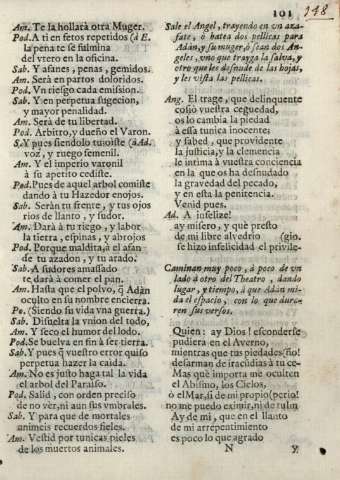 101
148
Am. Te la hollarà otra Muger.
Pod. A ti en fetos repetidos (à E.
la pena te se fulmina
del vtero en la oficina.
Sab. Y afanes, penas, gemidos.
Am. Serà en partos doloridos.
Pod. Vn riesgo cada emission.
Sab. Y en perpetua sugecion,
y mayor penalidad.
Am. Serà de tu libertad.
Pod. Arbitro, y dueño el Varon.
S. Y pues siendolo tuuiste (à Ad.
voz, y ruego femenil.
Am. Y el imperio varonil
à su apetito cediste.
Pod. Pues de aquel arbol comiste
dando à tu Hazedor enojos.
Sab. Seràn tu frente, y tus ojos
rios de llanto, y sudor.
Am. Darà à tu riego, y labor
la tierra, espinas, y abrojos
Pod. Porque maldita, à el afan
de tu azadon, y tu arado.
Sab. A sudores amassado
te darà à comer el pan.
Am. Hasta que el polvo, q̃ Adàn
oculto en su nombre encierra.
Po. (Siendo su vida vna guerra.)
Sab. Disuelta la vnion del todo,
Am. Y seco el humor del lodo.
Pod. Se buelva en fin à ser tierra.
Sab. Y pues q̃ vuestro error quiso
perpetua hazer la caida.
Am. No es justo haga tal la vida
el arbol del Paraiso.
Pod. Salid, con orden preciso
de no vèr, ni aun sus vmbrales.
Sab. Y para que de mortales
animeis recuerdos fieles.
Am. Vestid por tunicas pieles
de los muertos animales.
Sale el Angel, trayendo en vn aza-
fate, ò batea dos pellicas para
Adàn, y su muger, ò sean dos An-
geles, vno que trayga la salva, y
otro que les desnude de las hojas,
y les vista las pellicas.
Ang. El trage, que delinquente
cosiò vuestra ceguedad,
os lo cambia la piedad
à essa tunica inocente;
y sabed, que providente
la justicia, y la clemencia
le intima à vuestra conciencia
en la que os ha desnudado
la gravedad del pecado,
y en esta la penitencia.
Venid pues.
Ad. A infelize!
ay misero, y què presto
de mi libre alvedrio (gio.
te hizo infelicidad el privile-
Caminan muy poco, à poco de vn
lado à otro del Theatro, dando
lugar, y tiempo, à que Adàn mi-
da el espacio, con lo que dura-
ren sus versos.
Quien: ay Dios! esconderse
pudiera en el Averno,
mientras que tus piedades (ño!
desarman de iracudias à tu ce-
Mas què importa me oculten
el Abismo, los Cielos,
ò el Mar, si de mi propio (perio!
no me puedo eximir, ni de tu Im
Ay de mi, que en el llanto
de mi arrepentimiento
es poco lo que agrado
N
y